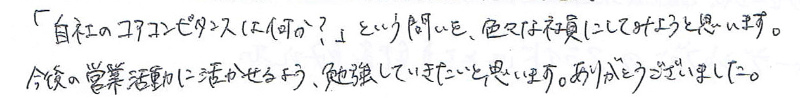 「自社のコアコンピタンスは何か?」という問いを、色々な社員にしてみようと思います。
今後の営業活動に活かせるよう、勉強していきたいと思います。ありがとうございました。